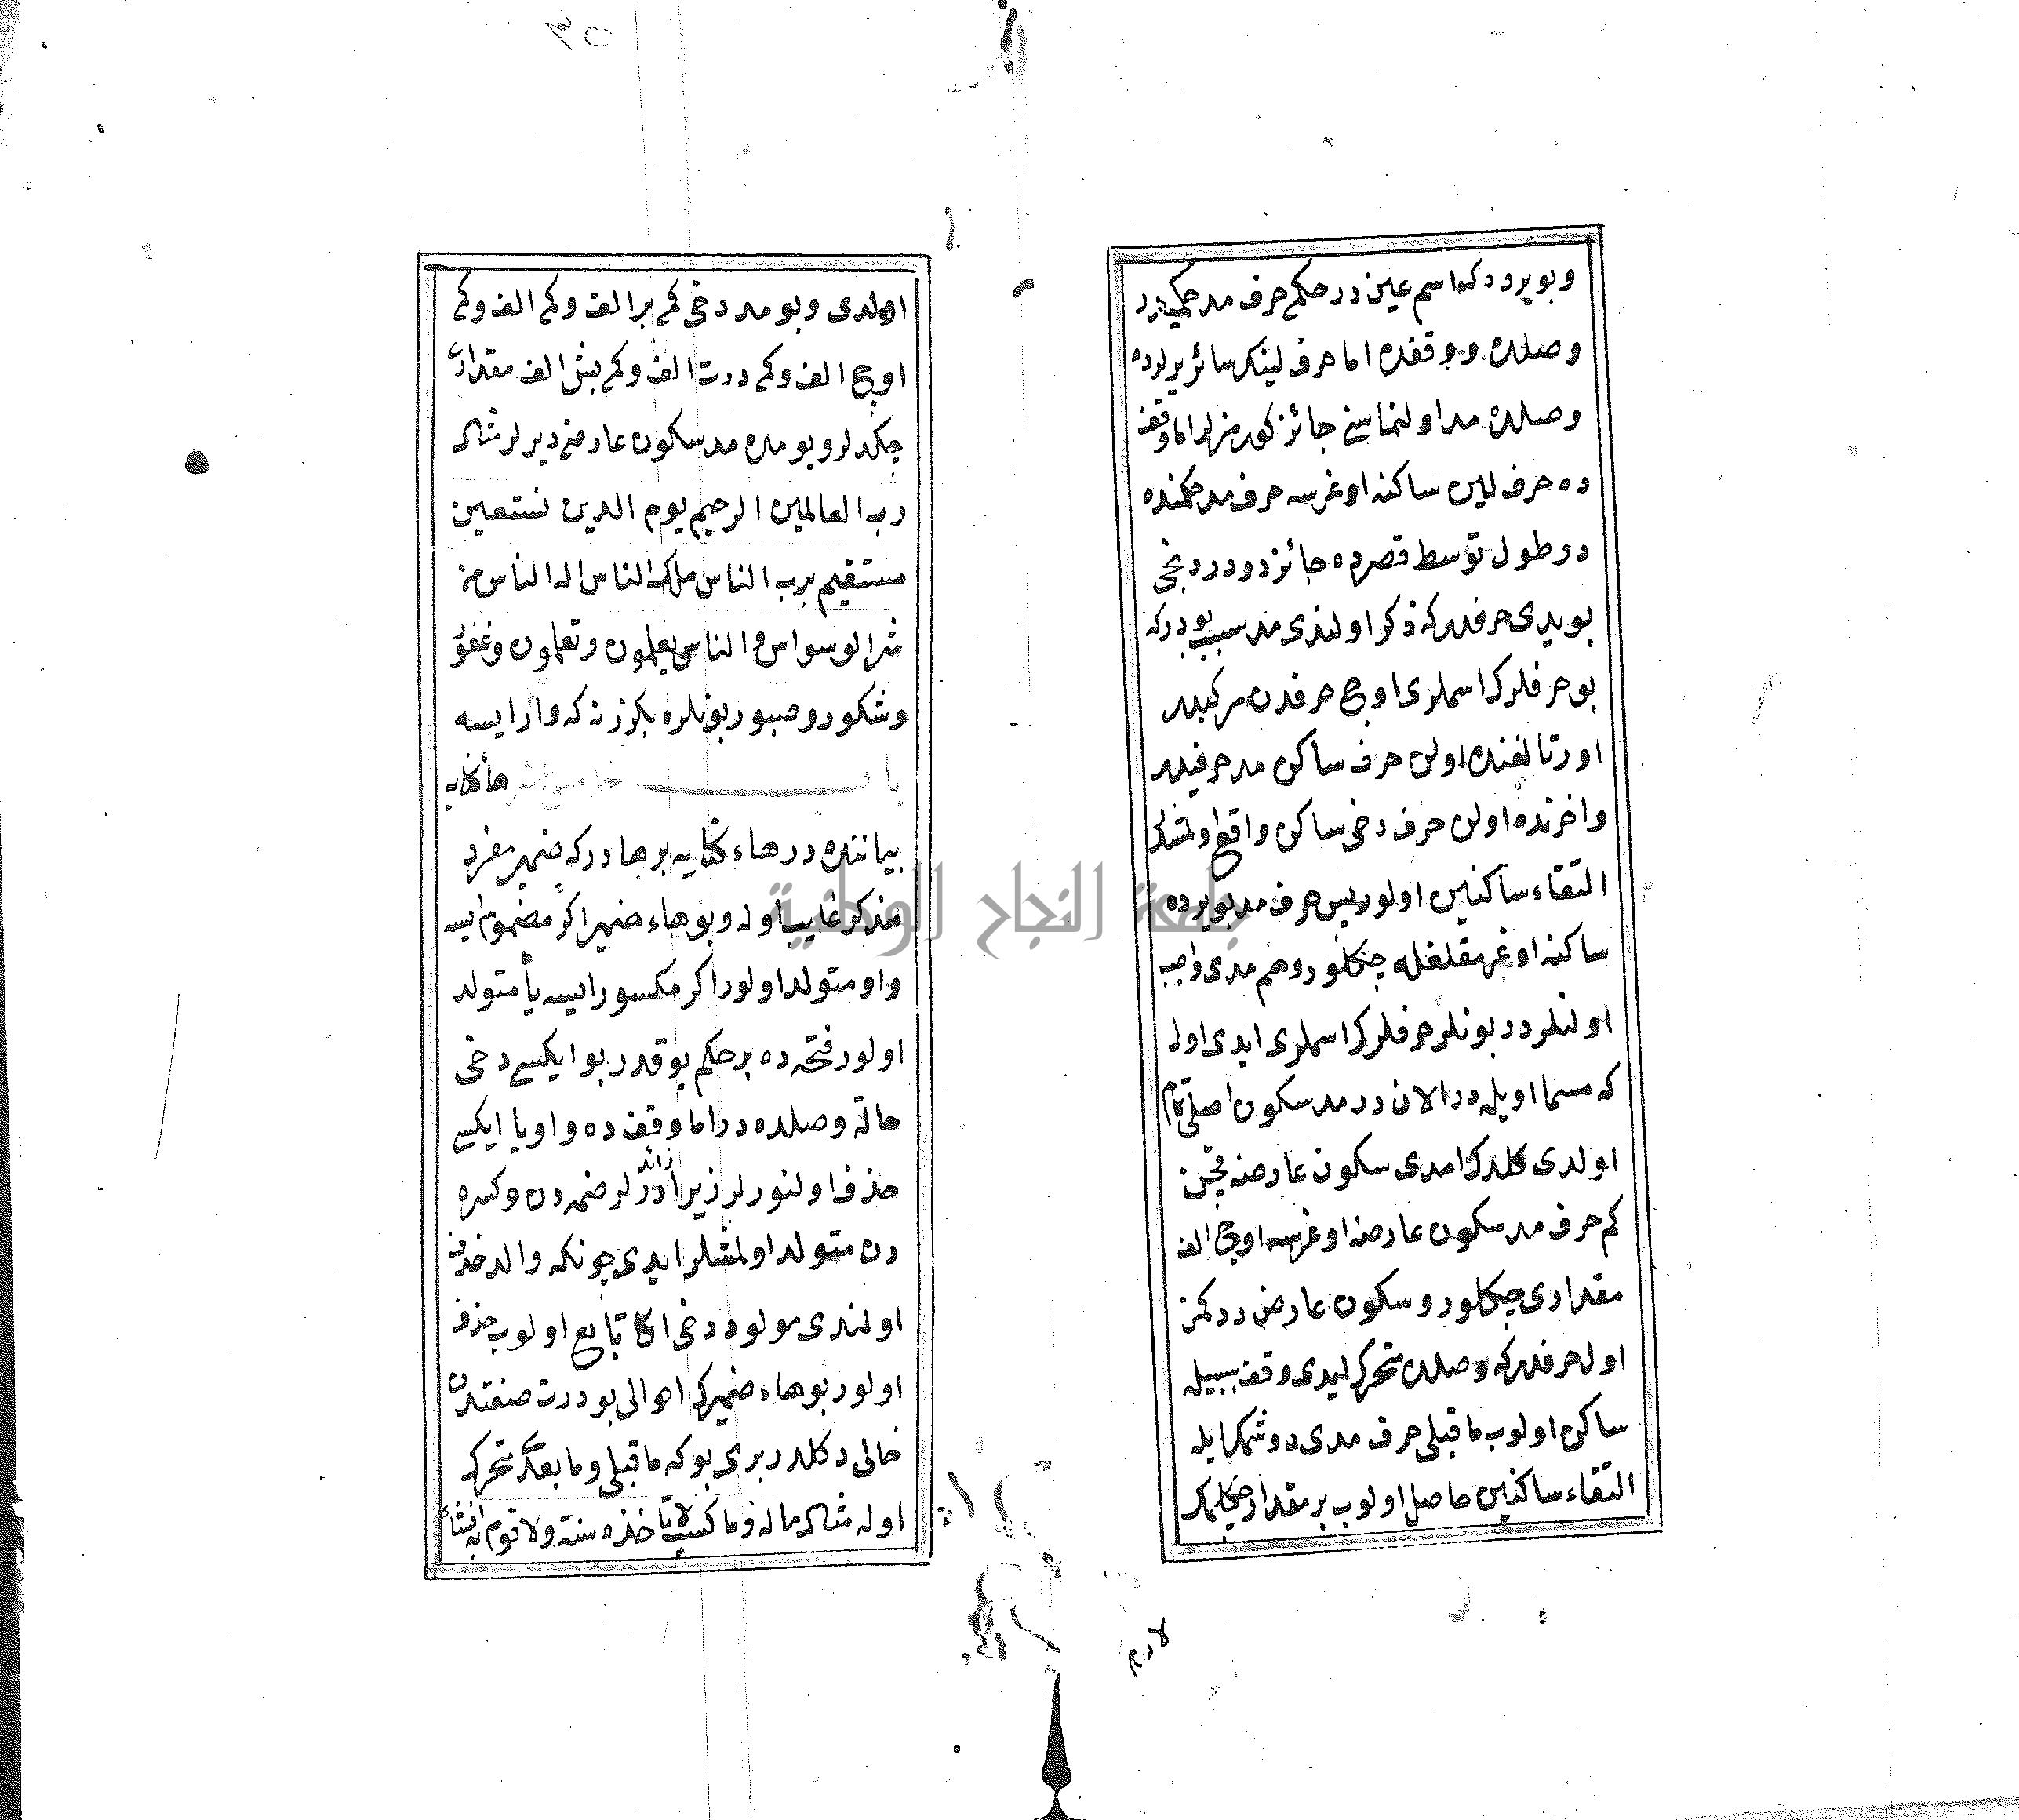 وبو يرودكه اسم عين در حكم حرف مد حكميدر
وصلده ووقفده اما حرف لينك سائر يرلرده
وصلده مد اولنماسنے جائز كورمزلر اما وقف
ده حرف لين ساكنه اوغرسه حرف مد حكمنده
در طول توسط قصر ده جائز دودر دخی
بو يدی حرفدر كه ذكر اولندی مد سبب بودر كه
بو حرفلرك اسملری اوچ حرفدن مركبدر
اورتالغنده اولن حرف ساكن مد حرفيدر
واخرنده اولن حرف دخی ساكن واقع اولمشدر
التقاء ساكنين اولور پس حرف مد بو يرده
ساكنه اوغرمقلغله چكلور وهم مدی واجب
اولنلردر بونلر حرفلرك اسملری ايدی اول
كه مسما اويله در الان در مد سكون اصلی تمام
اولدی كلدك امدی سكون عارضه قچن
كم حرف مد سكون عارضه اوغرسه اوچ الف
مقداری چكلور وسكون عارض ددكمز
اول حرفدر كه وصلده متحرك ايدی وقف سببيله
ساكن اولوب ما قبلی حرف مدی دوشمكله
التقاء ساكنين حاصل اولوب بر مقدار چكلمك
لازم
٣٥
اولدی وبو مد دخی كم بر الف وكم الف وكم
اوچ الف وكم درت الف وكم بش الف مقداری
چكدلر وبو مده مد سكون عارضی ديرلر مثال
رب العالمين الرحيم يوم الدين نستعين
مستقيم برب الناس ملك الناس اله الناس من
شر الوسواس والناس يعلمون وتعلمون وغفور
وشكور وصبور بونلره بكزر نه كه وار ايسه
باب خامس عشر هاء كنايه
بياننده در هاء كنايه بر هادر كه ضمير مفرد
مذكر غايب اوله وبو هاء ضمير اكر مضموم ايسه
واو متولد اولور اكر مكسور ايسه يا متولد
اولور فتحه ده بر حكم يوقدر بو ايكسے دخی
حالة وصلده در اما وقف ده واو يا ايكسے
حذف اولنورلر زيرا زائددرلر ضمه دن وكسره
دن متولد اولمشلر ايدی چونكه والد حذف
اولندی مولود دخی اكا تابع اولوب حذف
اولور بو هاء ضميرك احوالی بو درت صنفتدن
خالی دكلدر بری بو كه ما قبلی وما بعدی متحرك
اوله مثال ماله وما كسب لا تاخذه سنة ولا نوم
جامعة النجاح الوطنية